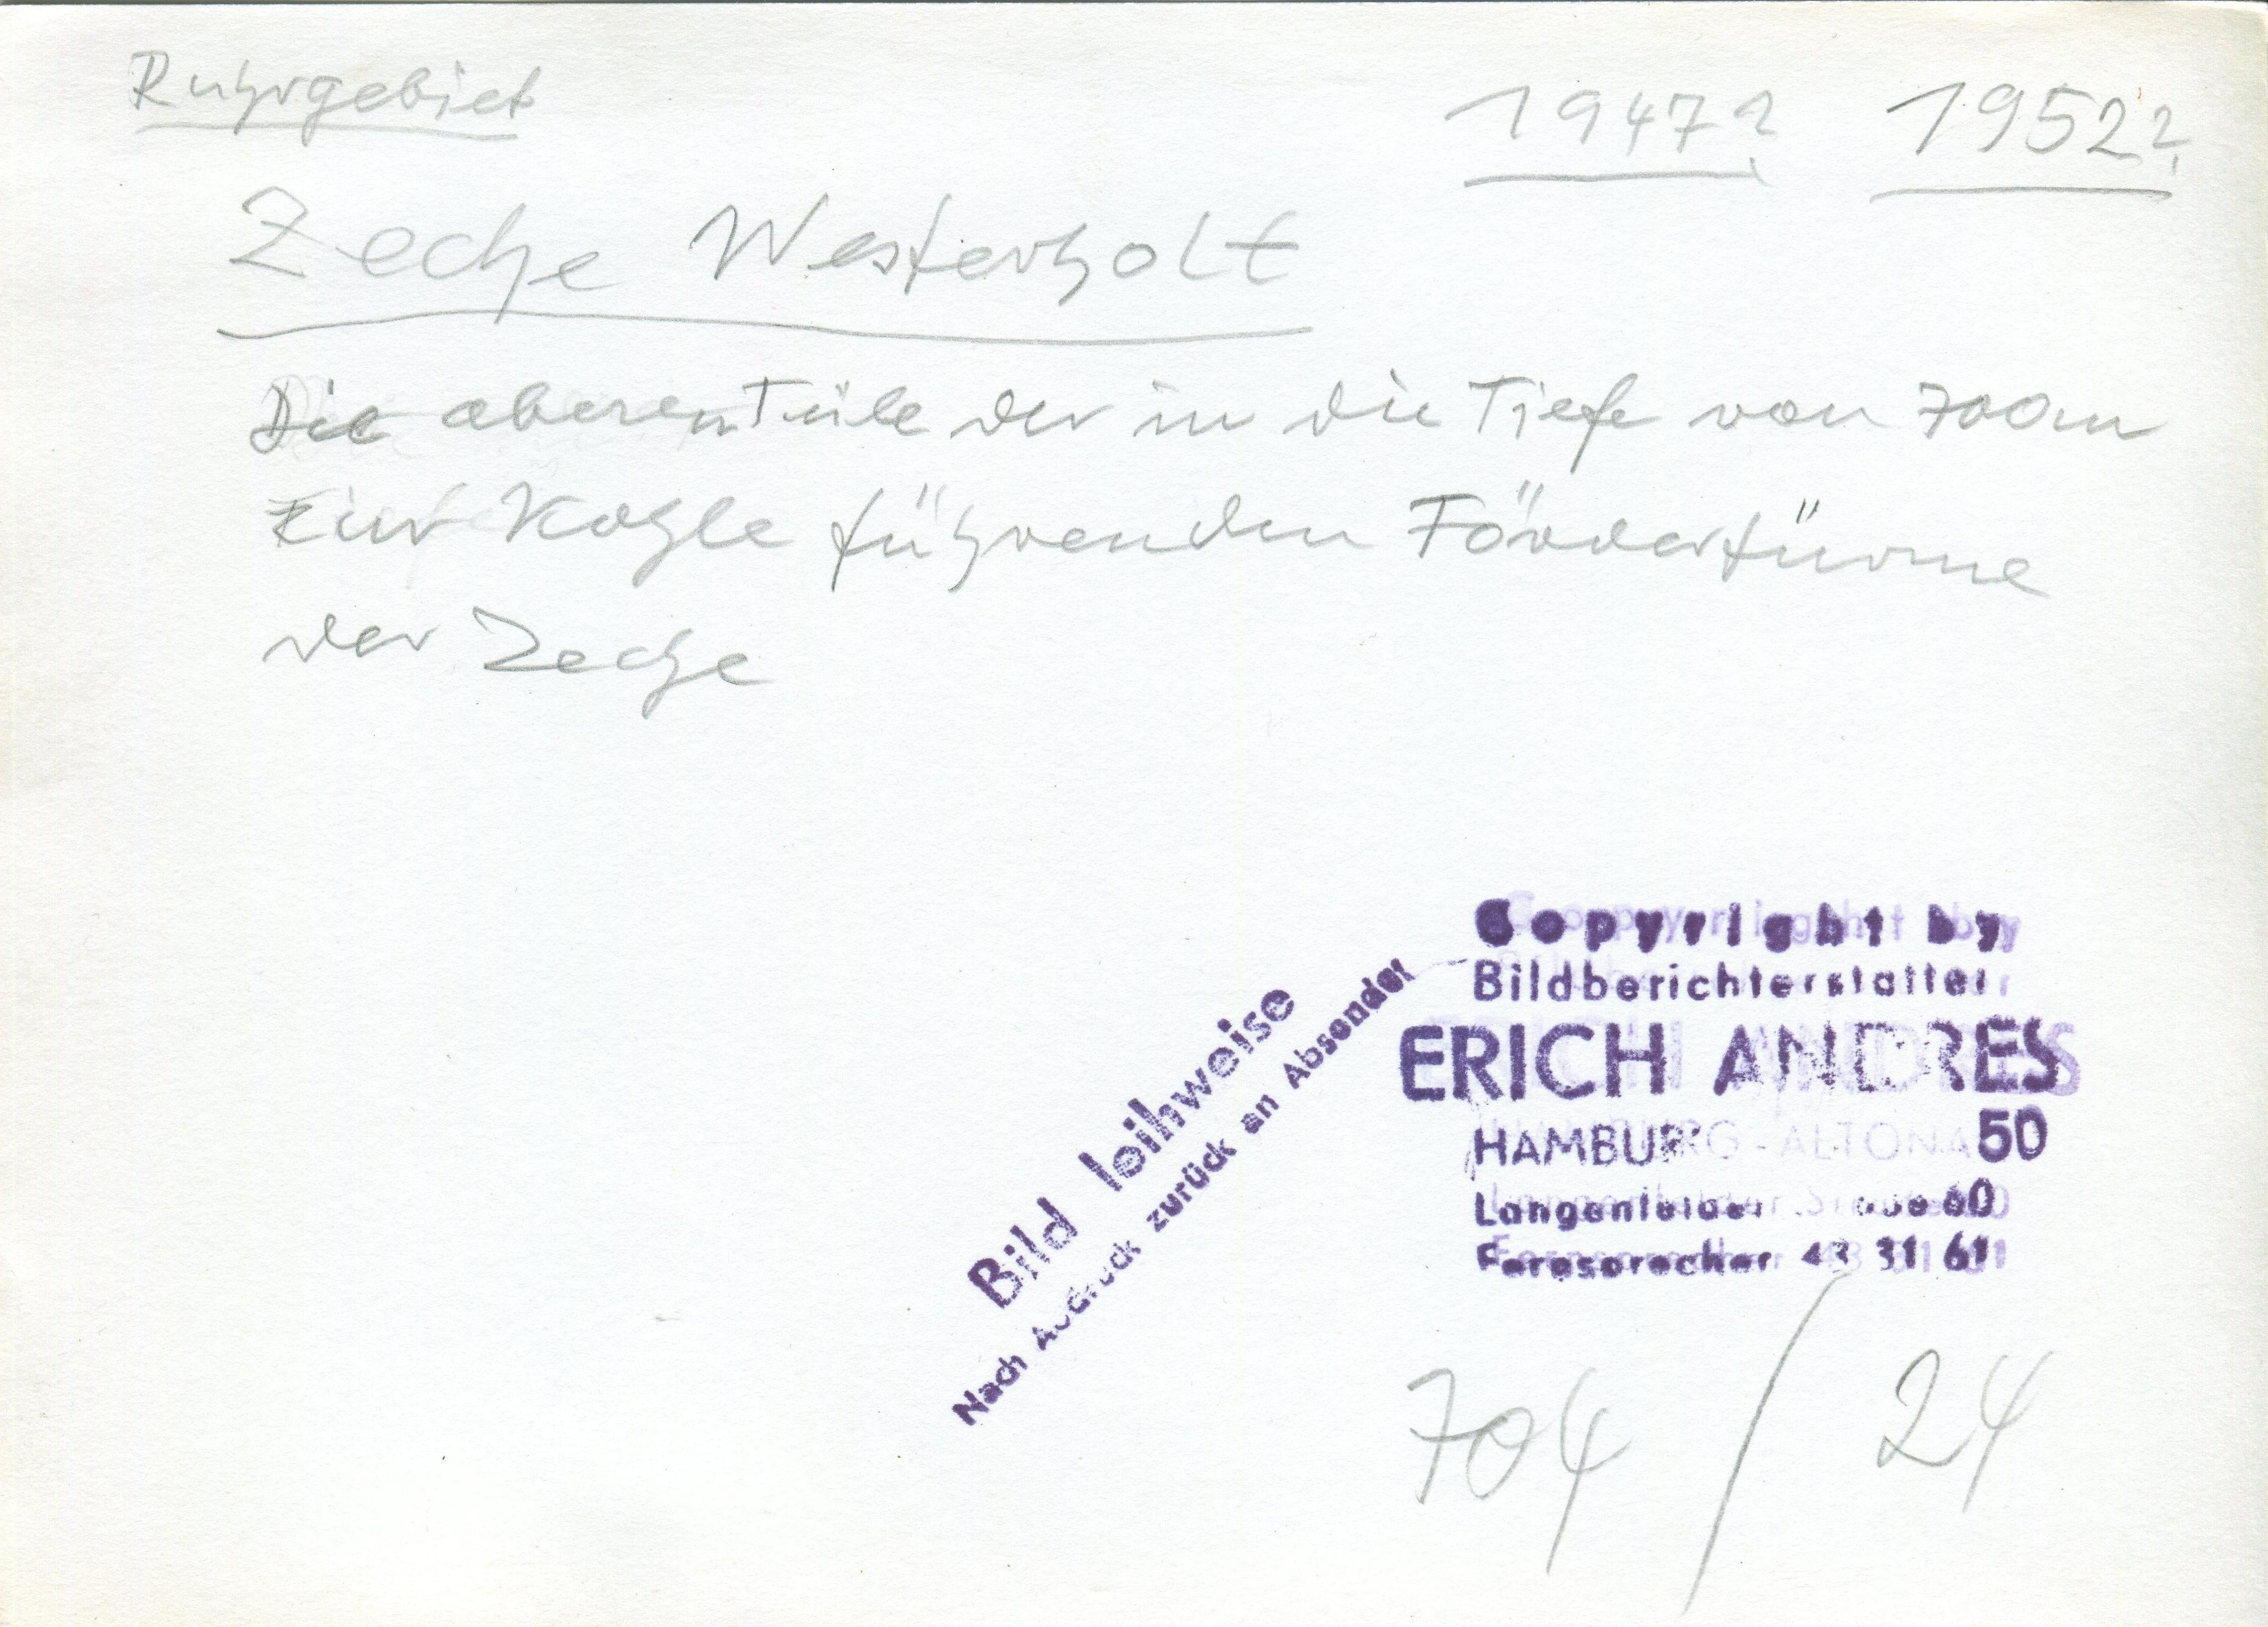 Ruhrgebiet
1947? 1952?
Zeche Westerholt
Die oberen Teile der in die Tiefe von 700m
zur Kohle führenden Fördertürme
der Zeche
Copyright by
Bildberichterstatter
ERICH ANDRES
HAMBURG-ALTONA 50
Langenfelder Straße 60
Fernsprecher 43 31 61
Bild leihweise
Nach Abdruck zurück an Absender
704 / 24